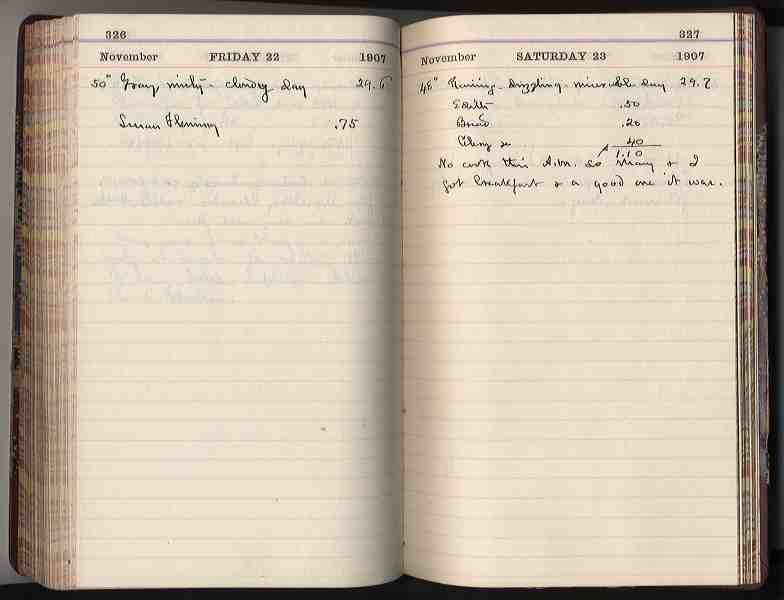 326
November FRIDAY 22 1907
50° Gray misty - cloudy day 29.6
Susan Fleming .75
327
November SATURDAY 23 1907
48° Raining - drizzling - miserable day 29.7
.50
Bread .20
40
1.10
No cook this A.M. so Mary & I
got breakfast & a good one it was.